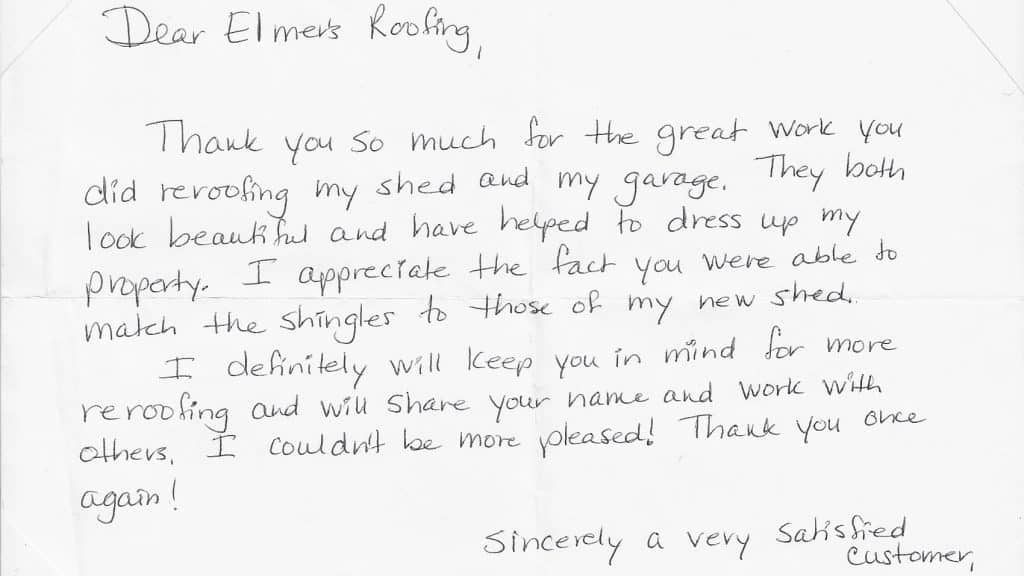 Dear Elmer's Roofing,
Thank you so much for the great work you
did reroofing my shed and my garage. They both
look beautiful and have helped to dress up my
property. I appreciate the fact you were able to
match the shingles to those of my new shed.
I definitely will keep you in mind for more
reroofing and will share your name and work with
others. I couldn't be more pleased! Thank you once
again!
Sincerely a very satisfied
customer,